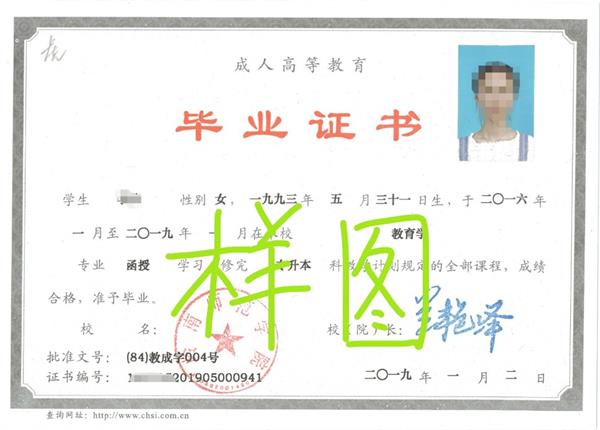 成人高等教育
毕业证书
学生 性别 女，一九九三年 五 月三十一日生，于二〇一六年
一月至二〇一九年 一 月在本校 教育学
专业 函授 学习 修完 专升本 科教学计划规定的全部课程，成绩
合格，准予毕业。
校 名： 校（院）长：
批准文号： (84)教成字004号
证书编号： 201905000941 二〇一九 年 一 月 二 日
查询网址：http://www.chsi.com.cn
样图